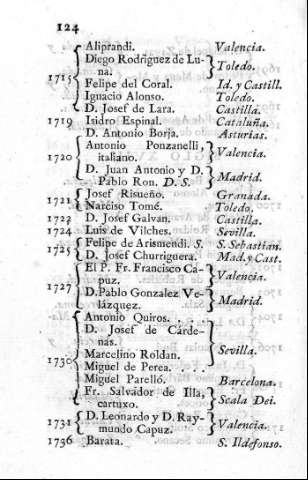 124
Aliprandi. Valencia.
Diego Rodriguez de Lu-
na. Toledo.
1715 Felipe del Coral. Id. y Castill.
Ignacio Alonso. Toledo.
D. Josef de Lara. Castilla.
1719 Isidro Espinal. Cataluña.
D. Antonio Borja. Asturias.
Antonio Ponzanelli,
1720 italiano. Valencia.
D. Juan Antonio y D.
Pablo Ron. D. S. Madrid.
Josef Risueño. Granada.
1721 Narciso Tomé. Toledo.
1723 D. Josef Galvan. Castilla.
1724 Luis de Vilches. Sevilla.
Felipe de Arismendi. S. S. Sebastian.
1725 D. Josef Churriguera. Mad. y Cast.
El P. Fr. Francisco Ca-
puz. Valencia.
1727 D. Pablo Gonzalez Ve-
lázquez. Madrid.
Antonio Quiros. . . .
D. Josef de Cárde-
nas.
Marcelino Roldan. Sevilla.
1730 Miguel de Perea. . . .
Miguel Parelló. Barcelona.
Fr. Salvador de Illa,
cartuxo. Scala Dei.
1731 D. Leonardo y D. Ray-
mundo Capuz. Valencia.
1736 Barata. S. Ildefonso.